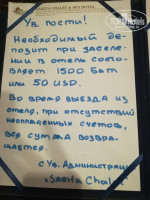 SARITA CHALET & SPA HOTEL
Ув. гости!
Необходимый де-
позит при заселе-
нии в отель состо-
вляет 1500 Бат
или 50 USD.
Во время выезда из
отеля, при отсутствий
неоплаченных счетов,
вся сумма возвра-
щается.
С Ув. Администраци
"Sarita Chalet"